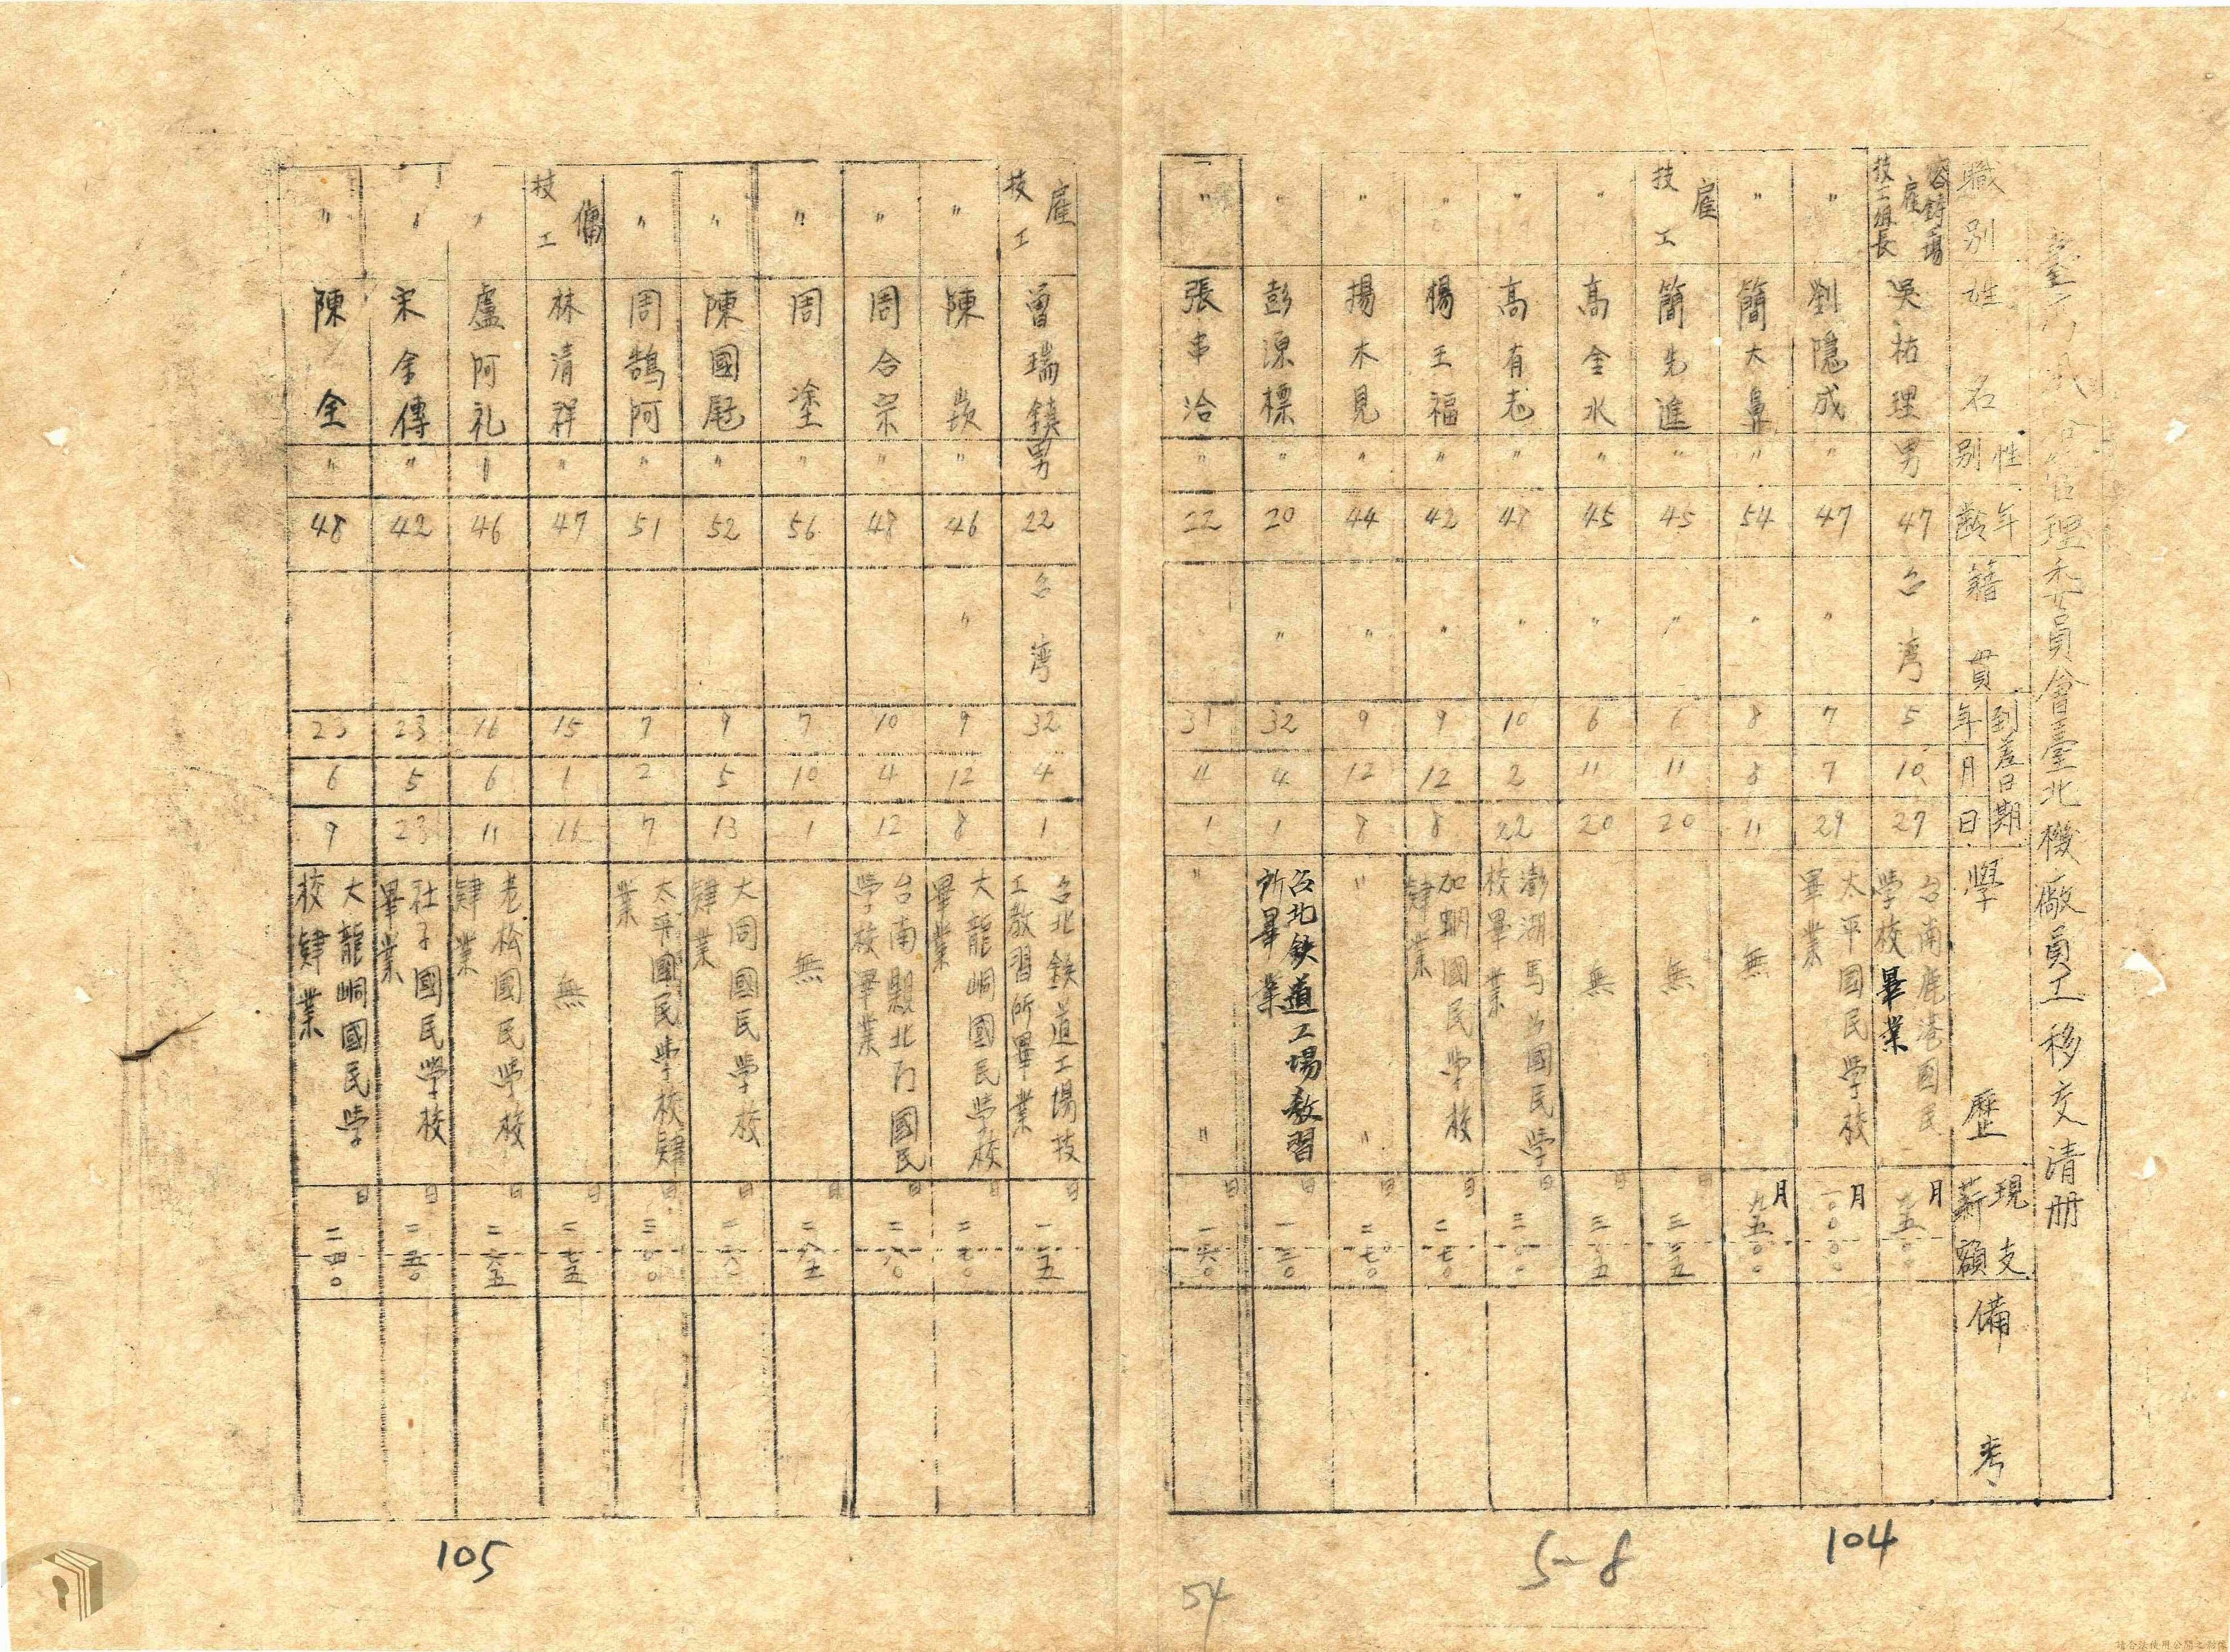 臺灣鐵路管理委員會臺北機廠員工移交清册
職別 姓名 性別 年齡 籍貫 到差日期 年 月 日 學歷 現支薪額 備考
雇 技工組長 吳祐理 男 47 台湾 5 10 27 台南鹿港国民学校畢業 月
〃 劉隱成 〃 47 〃 7 7 29 太平国民学校畢業 月 一〇〇〇〇
〃 簡大鼻 〃 54 〃 8 8 11 無 月 九五〇〇
雇 技工 簡先進 〃 45 〃 6 11 20 無 日 三二五
〃 高金水 〃 45 〃 6 11 20 無 日 三二五
〃 高有志 〃 48 〃 10 2 22 澎湖馬公國民学校畢業 日 三〇〇
〃 楊王福 〃 42 〃 9 12 8 加蚋國民学校肄業 日 二七〇
〃 揚木見 〃 44 〃 9 12 8 〃 〃 日 二七〇
〃 彭源標 〃 20 〃 32 4 1 台北鉄道工場教習所畢業 日 一三〇
〃 張串治 〃 22 31 4 1 〃 〃 日 一六〇
104
5-8
54
雇 技工 曾瑞鎮 男 22 台湾 32 4 1 台北鉄道工場技工教習所畢業 日 一一五
〃 陳崁 〃 46 〃 9 12 8 大龍峒國民学校畢業 日 二七〇
〃 周合宗 〃 48 10 4 12 台南縣北門國民学校畢業 日 二八〇
〃 周塗 〃 56 7 10 1 無 日
〃 陳國 〃 52 9 5 13 大同國民学校肄業 日 二六〇
〃 周鵠阿 〃 51 7 2 7 太平國民学校肄業 日 三〇〇
傭 技工 林清祥 〃 47 15 1 16 無 日 二七五
〃 盧阿礼 〃 46 16 6 11 老松國民学校肄業 日 二六五
〃 宋金傳 〃 42 23 5 23 社子國民学校畢業 日 二五〇
〃 陳全 〃 48 23 6 9 大龍峒國民学校肄業 日 二四〇
105